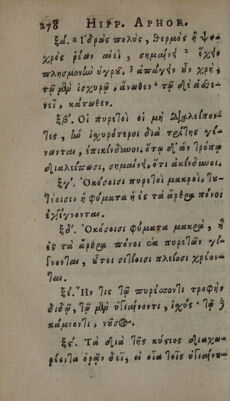 278 HIPP. APHOR.
ξα΄. Ἱδρὼς πολὺς, θερμὸς ἢ ψυ-
χρὸς ῥέων αἰεὶ, σημαίνει ἔχειν
πλησμονὴν ὑγροῦ. ἀπάγειν οὖν χρὴ,
τῷ μὲν ἰσχυρῷ, ἄνωθεν· τῷ δὲ ἀσθε-
νεῖ, κάτωθεν.
ξβ΄. Οἱ πυρετοὶ οἱ μὴ διαλείπον-
τες, ἢν ἰσχυρότεροι διὰ τρίτης γί-
νωνται, ἐπικίνδυνοι. ὅτῳ δ' ἂν τρόπῳ
διαλείπωσι, σημαίνει, ὅτι ἀκίνδυνοι.
ξγ΄. Ὁκόσοισι πυρετοὶ μακροὶ, του-
τέοισιν ἢ φύματα ἢ ἐς τὰ ἄρθρα πόνοι
ἐγγίγνονται.
ξδ΄. Ὁκόσοισι φύματα μακρὰ, ἢ
ἐς τὰ ἄρθρα πόνοι ἐκ πυρετῶν γί-
γνονται, οὗτοι σιτίοισι πλείοσι χρέον-
ται.
ξέ. Ἤν τις τῷ πυρέσσοντι τροφὴν
διδῷ, τῷ μὲν ὑγιαίνοντι, ἰσχύς· τῷ δὲ
κάμνοντι, νοῦσος.
ξϛ΄. Τὰ διὰ τῆς κύστιος διαχω-
ρέοντα ὁρῆν δεῖ, εἰ οἷα τοῖς ὑγιαίνου-